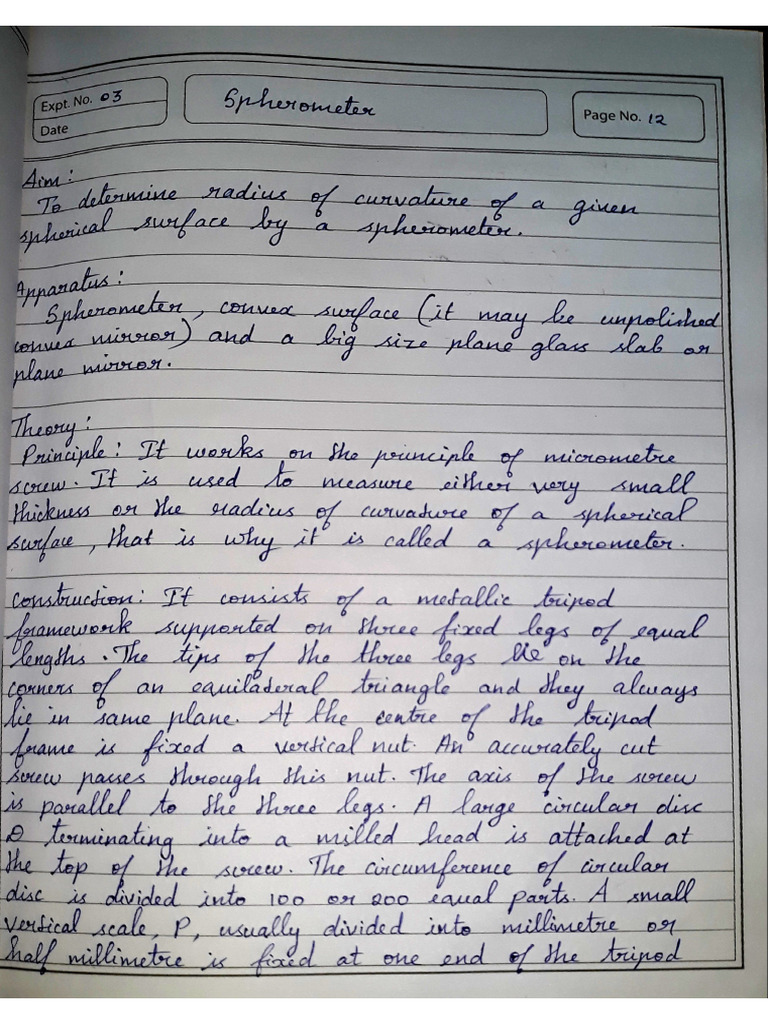 Expt. No. 03
Date
Spherometer
Page No. 12
Aim:
To determine radius of curvature of a given
spherical surface by a spherometer.
Apparatus:
Spherometer, convex surface (it may be unpolished
convex mirror) and a big size plane glass slab or
plane mirror.
Theory:
Principle: It works on the principle of micrometre
screw. It is used to measure either very small
thickness or the radius of curvature of a spherical
surface, that is why it is called a spherometer.
Construction: It consists of a metallic tripod
framework supported on three fixed legs of equal
lengths. The tips of the three legs lie on the
corners of an equilateral triangle and they always
lie in same plane. At the centre of the tripod
frame is fixed a vertical nut. An accurately cut
screw passes through this nut. The axis of the screw
is parallel to the three legs. A large circular disc
D terminating into a milled head is attached at
the top of the screw. The circumference of circular
disc is divided into 100 or 200 equal parts. A small
vertical scale, P, usually divided into millimetre or
half millimetre is fixed at one end of the tripod